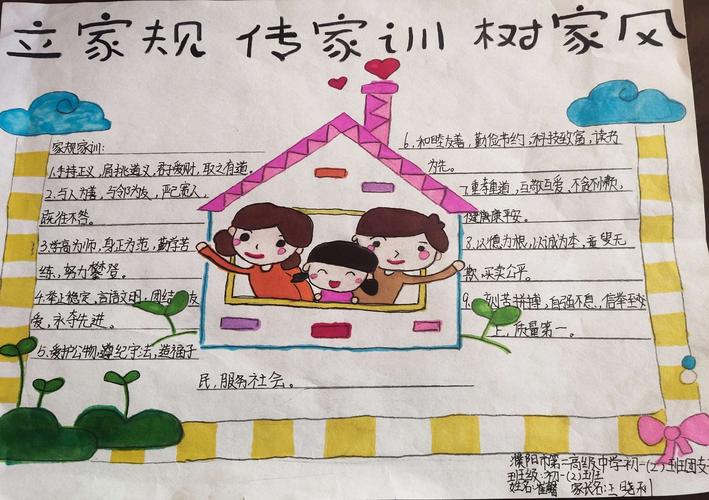 立家规 传家训 树家风
家规家训:
1.手持正义,肩挑道义,君子爱财,取之有道。
2.与人为善,与邻为友,严己宽人,
既往不咎。
3.学高为师,身正为范,勤学苦
练,努力攀登。
4.举止稳定,言语文明,团结
爱,永夺先进。
5.爱护公物,遵纪守法,造福于
民,服务社会。
6.和睦友善,勤俭节约,科技致富,读书
为先。
7.重孝重道,互敬互爱,不贪不
健康康平安。
8.以德为根,以诚为本,童叟无
欺,买卖公平。
9.刻苦拼搏,自强不息,信誉至
上,质量第一。
濮阳市第一高级中学初一(2)班团支
班级:初一(2)班
姓名: 家长名:王晓利